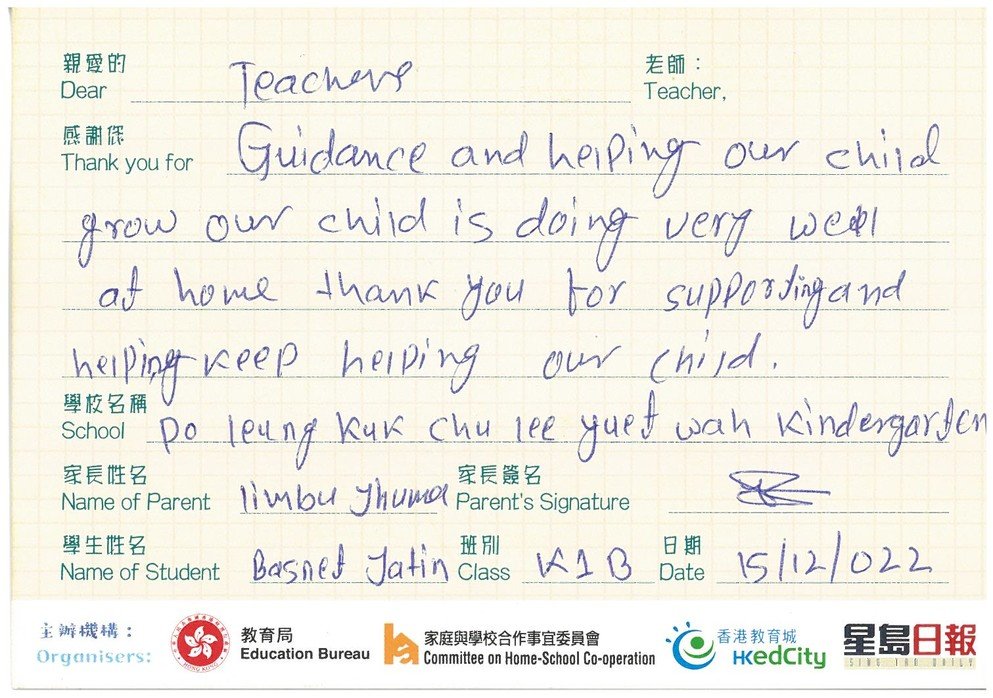 親愛的 老師：
Dear Teachers Teacher,
感謝您
Thank you for Guidance and helping our child
grow our child is doing very well
at home thank you for supporting and
helping keep helping our child.
學校名稱
School po leung kuk chu lee yuet wah kindergarten
家長姓名 家長簽名
Name of Parent limbu Jhuma Parent's Signature
學生姓名 班別 日期
Name of Student Basnet Jatin Class K1B Date 15/12/022
主辦機構：
Organisers:
教育局
Education Bureau
家庭與學校合作事宜委員會
Committee on Home-School Co-operation
香港教育城
HKedCity
星島日報
SING TAO DAILY